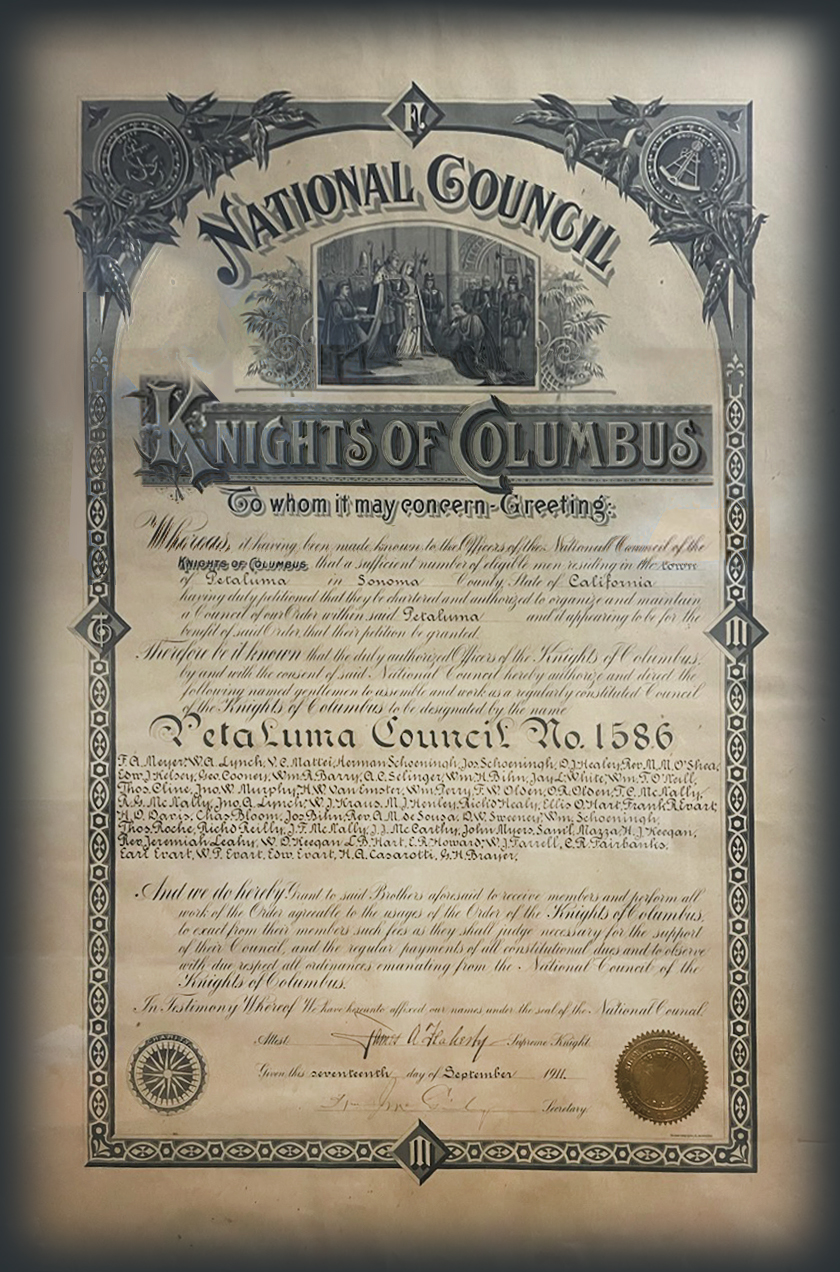 F.
NATIONAL COUNCIL
KNIGHTS OF COLUMBUS
To whom it may concern - Greeting:
Whereas, it having been made known to the Officers of the National Council of the
KNIGHTS OF COLUMBUS, that a sufficient number of eligible men residing in the town
of Petaluma in Sonoma County, State of California
having duly petitioned that they be chartered and authorized to organize and maintain
a Council of our Order within said Petaluma and it appearing to be for the
benefit of said Order, that their petition be granted.
Therefore be it known that the duly authorized Officers of the Knights of Columbus,
by and with the consent of said National Council hereby authorize and direct the
following named gentlemen to assemble and work as a regularly constituted Council
of the Knights of Columbus to be designated by the name
Petaluma Council No. 1586
F.A. Meyer, W.A. Lynch, V.C. Mattei, Herman Schoeningh, Jos. Schoeningh, D.J. Healey, Rev. M.M. O'Shea,
Edw. J. Kelsey, Geo. Cooney, Wm. R. Barry, A.C. Selinger, Wm. H. Bihn, Jay L. White, Wm. F. O'Neill,
Thos. Cline, Jno. W. Murphy, H.W. Van Emster, Wm. Perry, F.W. Olsen, O.R. Olsen, T.C. McNally,
R.G. McNally, Jno. A. Lynch, W.J. Kraus, M.J. Henley, Rich'd Healy, Ellis O. Hart, Frank R. Evart,
H.O. Davis, Chas. Bloom, Jos. Bihn, Rev. A.M. de Sousa, D.W. Sweeney, Wm. Schoeningh,
Thos. Roche, Rich'd Reilly, J.F. McNally, J.J. McCarthy, John Myers, Sam'l Mazza, H.J. Keegan,
Rev. Jeremiah Leahy, W.O. Keegan, L.B. Hart, E.R. Howard, W.J. Farrell, C.R. Fairbanks,
Earl Evart, W.P. Evart, Edw. Evart, H.A. Casarotti, G.H. Brayer.
And we do hereby Grant to said Brothers aforesaid to receive members and perform all
work of the Order agreeable to the usages of the Order of the Knights of Columbus,
to exact from their members such fees as they shall judge necessary for the support
of their Council, and the regular payments of all constitutional dues and to observe
with due respect all ordinances emanating from the National Council of the
Knights of Columbus.
In Testimony Whereof We have hereunto affixed our names under the seal of the National Council.
CHARITY
Attest James A Flaherty Supreme Knight.
Given this seventeenth day of September 1911.
Secretary